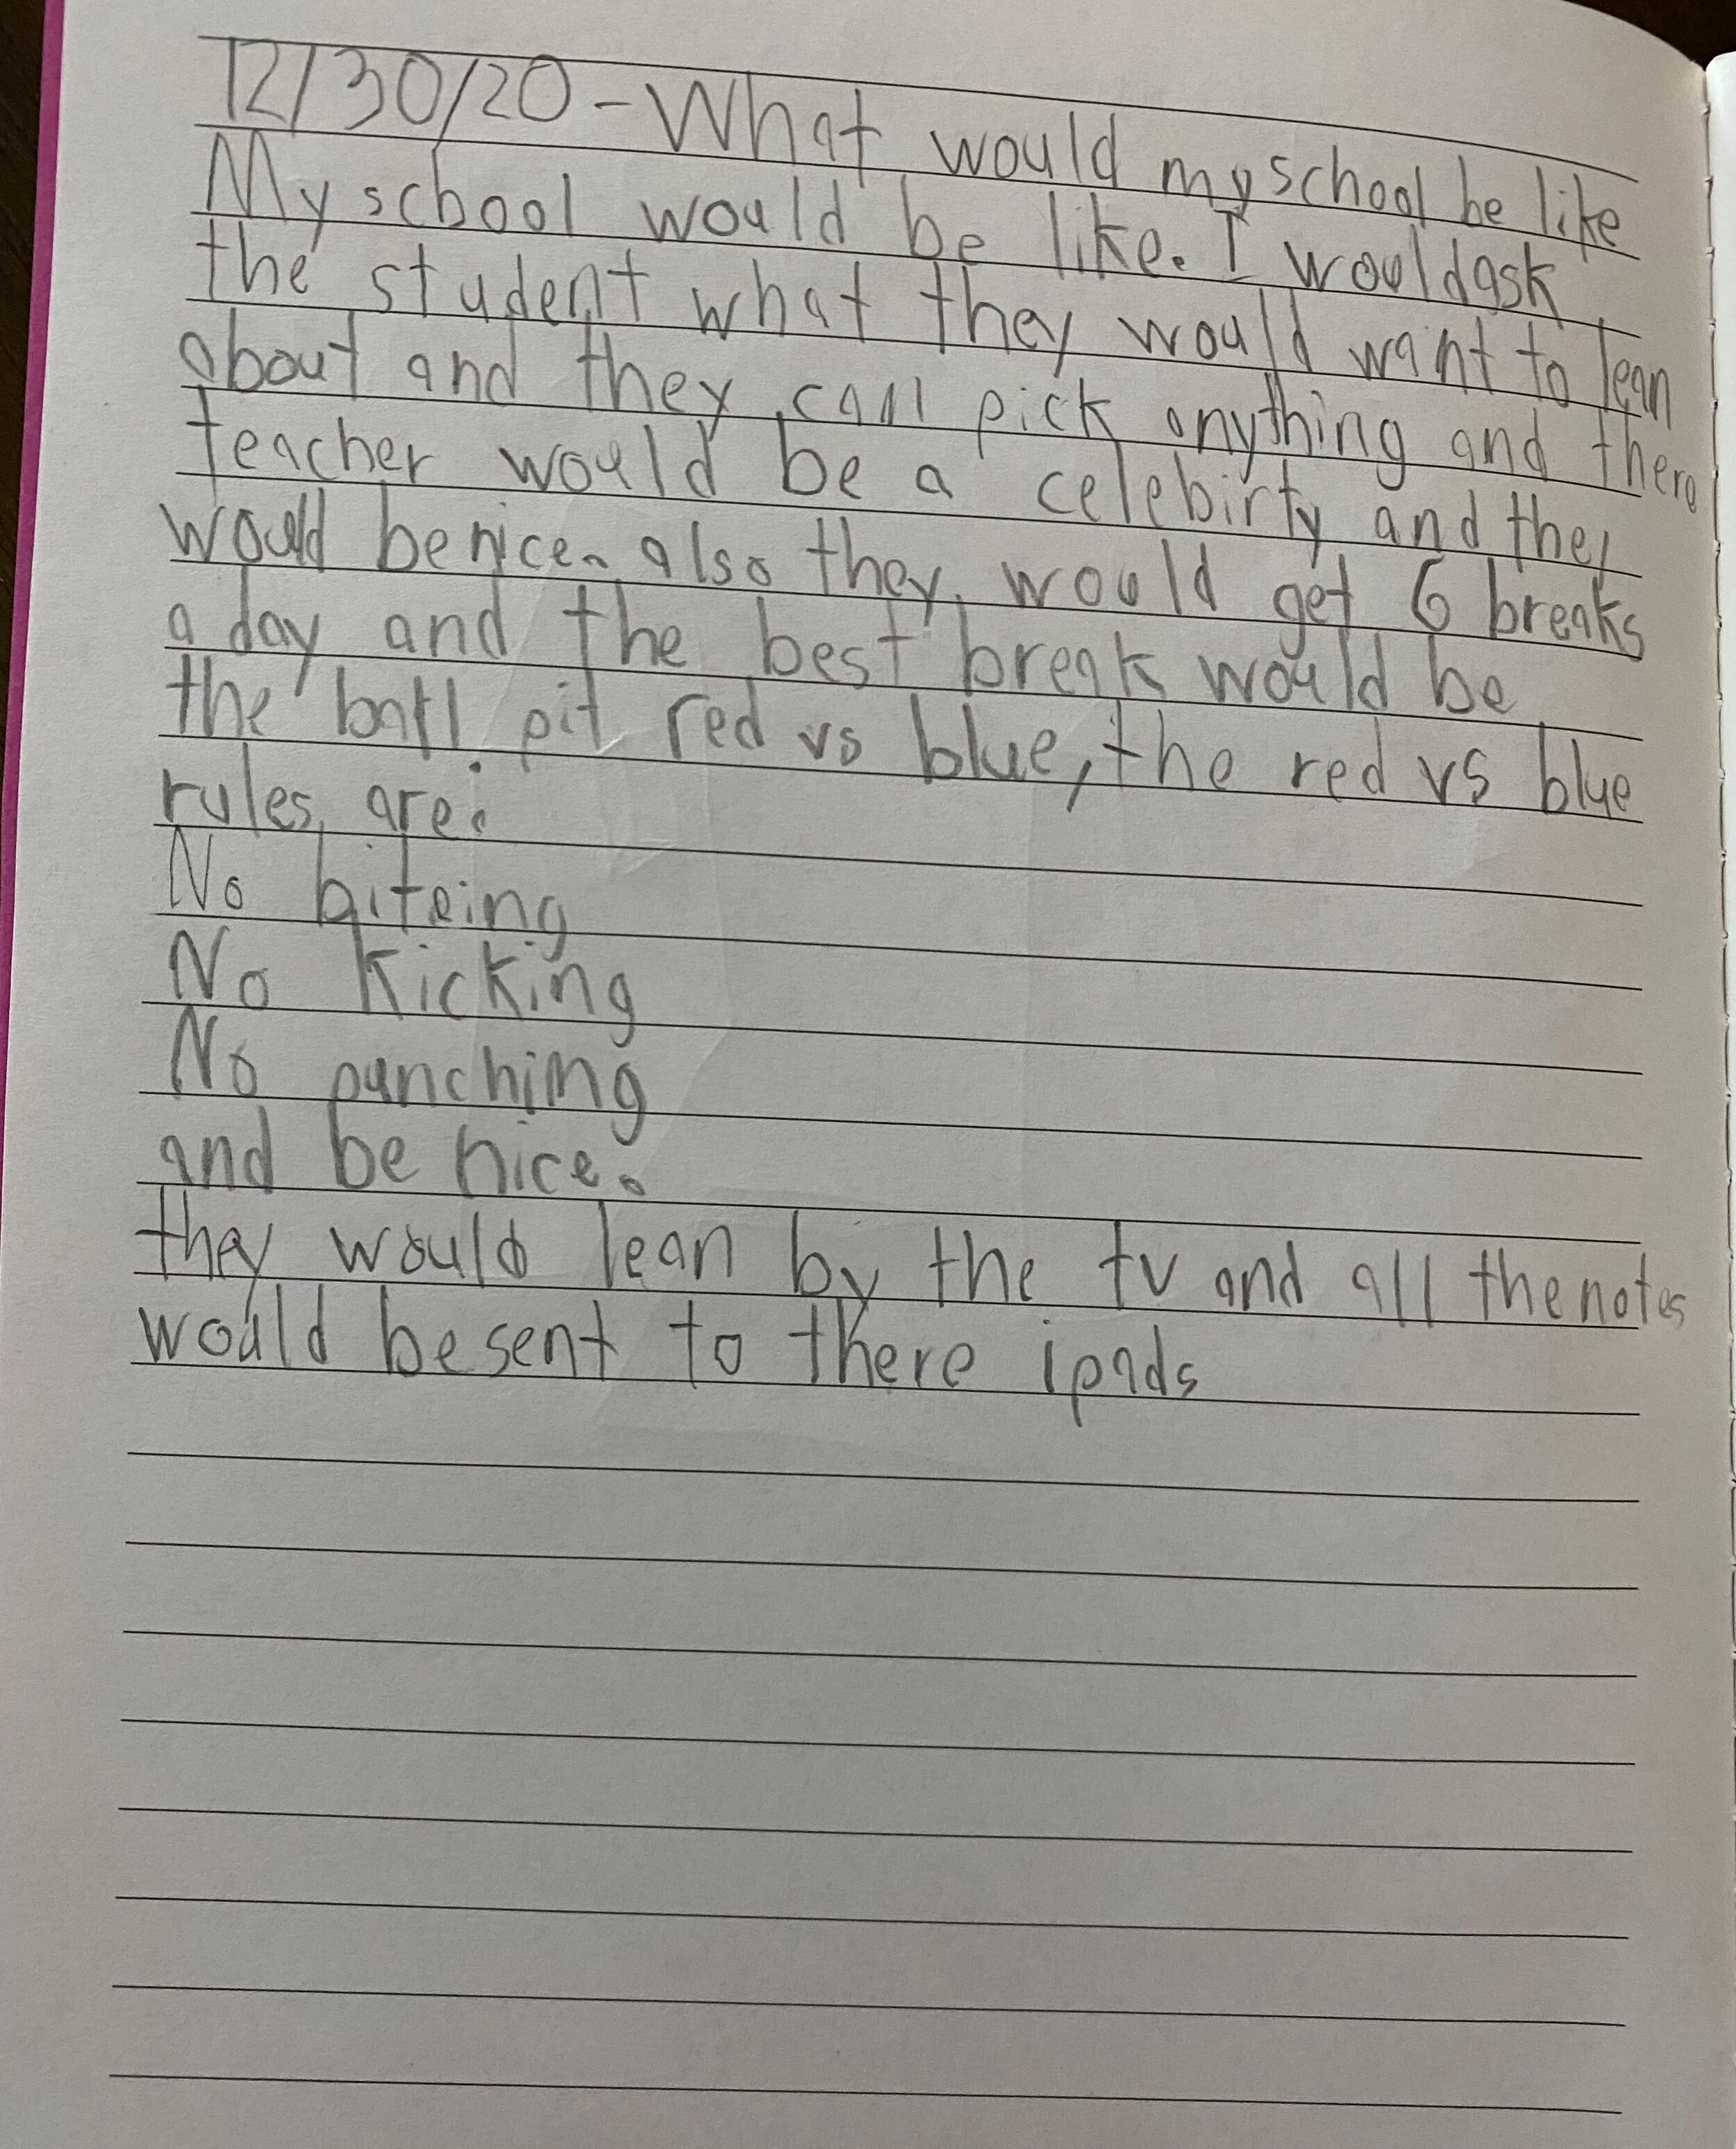 12/30/20 - What would my school be like
My school would be like. I would ask
the student what they would want to lean
about and they can pick anything and there
teacher would be a celebirty and they
would be nice. also they would get 6 breaks
a day and the best break would be
the ball pit red vs blue, the red vs blue
rules are:
No biteing
No kicking
No punching
and be nice.
they would lean by the tv and all the notes
would be sent to there ipads